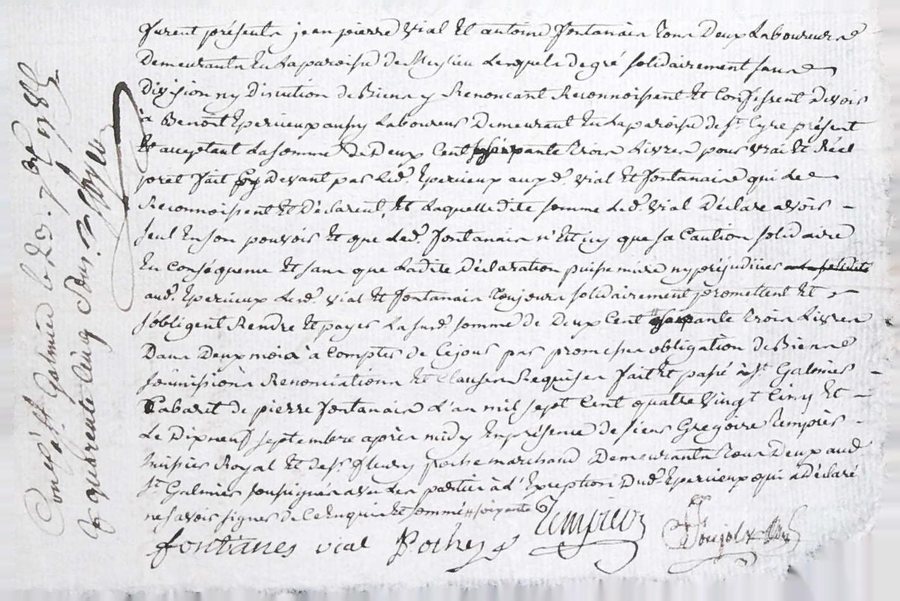 furent présents jean pierre vial Et antoine fontanain tous Deux Laboureurs
Demeurants En La paroisse de Meylieu Lesquels de gré solidairement sans
Division ny Discution de Biens y Renoncant Reconnoissent Et Confessent Devoir
à Benoît Eperieux aussy Laboureur Demeurant En La paroisse de St. Cyre présent
Et acceptant La somme De Deux Cent soixante trois Livres pour vrai Et Réel
pret fait Devant par Led. Eperieux auxd. vial Et fontanain qui Le
Reconnoissent Et Déclarent, Et Laquelle dite somme Led. vial Déclare avoir
seul En son pouvoir Et que Led. fontanain n'Est icy que sa Caution solidaire
En Conséquence Et sans que Ladite Déclaration puisse nuire ny préjudicier
aud. Eperieux Lesd. vial Et fontanain toujours solidairement promettent Et
s'obligent Rendre Et payer La susd. somme de Deux Cent soixante trois Livres
Dans Deux mois à Compter de Cejour par promesse obligation de Biens
soumissions Renonciations Et Clauses Requises fait Et passé à St. Galmier
Cabaret de pierre fontanain L'an mil sept Cent quatre vingt Cinq Et
Le Dix neuf septembre après midy En présence de sieur Gregoire tempier
huissier Royal Et de sr. fleury poche marchand Demeurants tous Deux aud.
St. Galmier soussignés avec Les parties à L'Exception Dud. Eperieux qui a Déclaré
ne savoir signer de Ce Enquis Et sommé soixante
fontanes vial Poche tempier Poujol
Con.lé à St. Galmier le 20. 7bre 1785
R quarente Cinq Sous